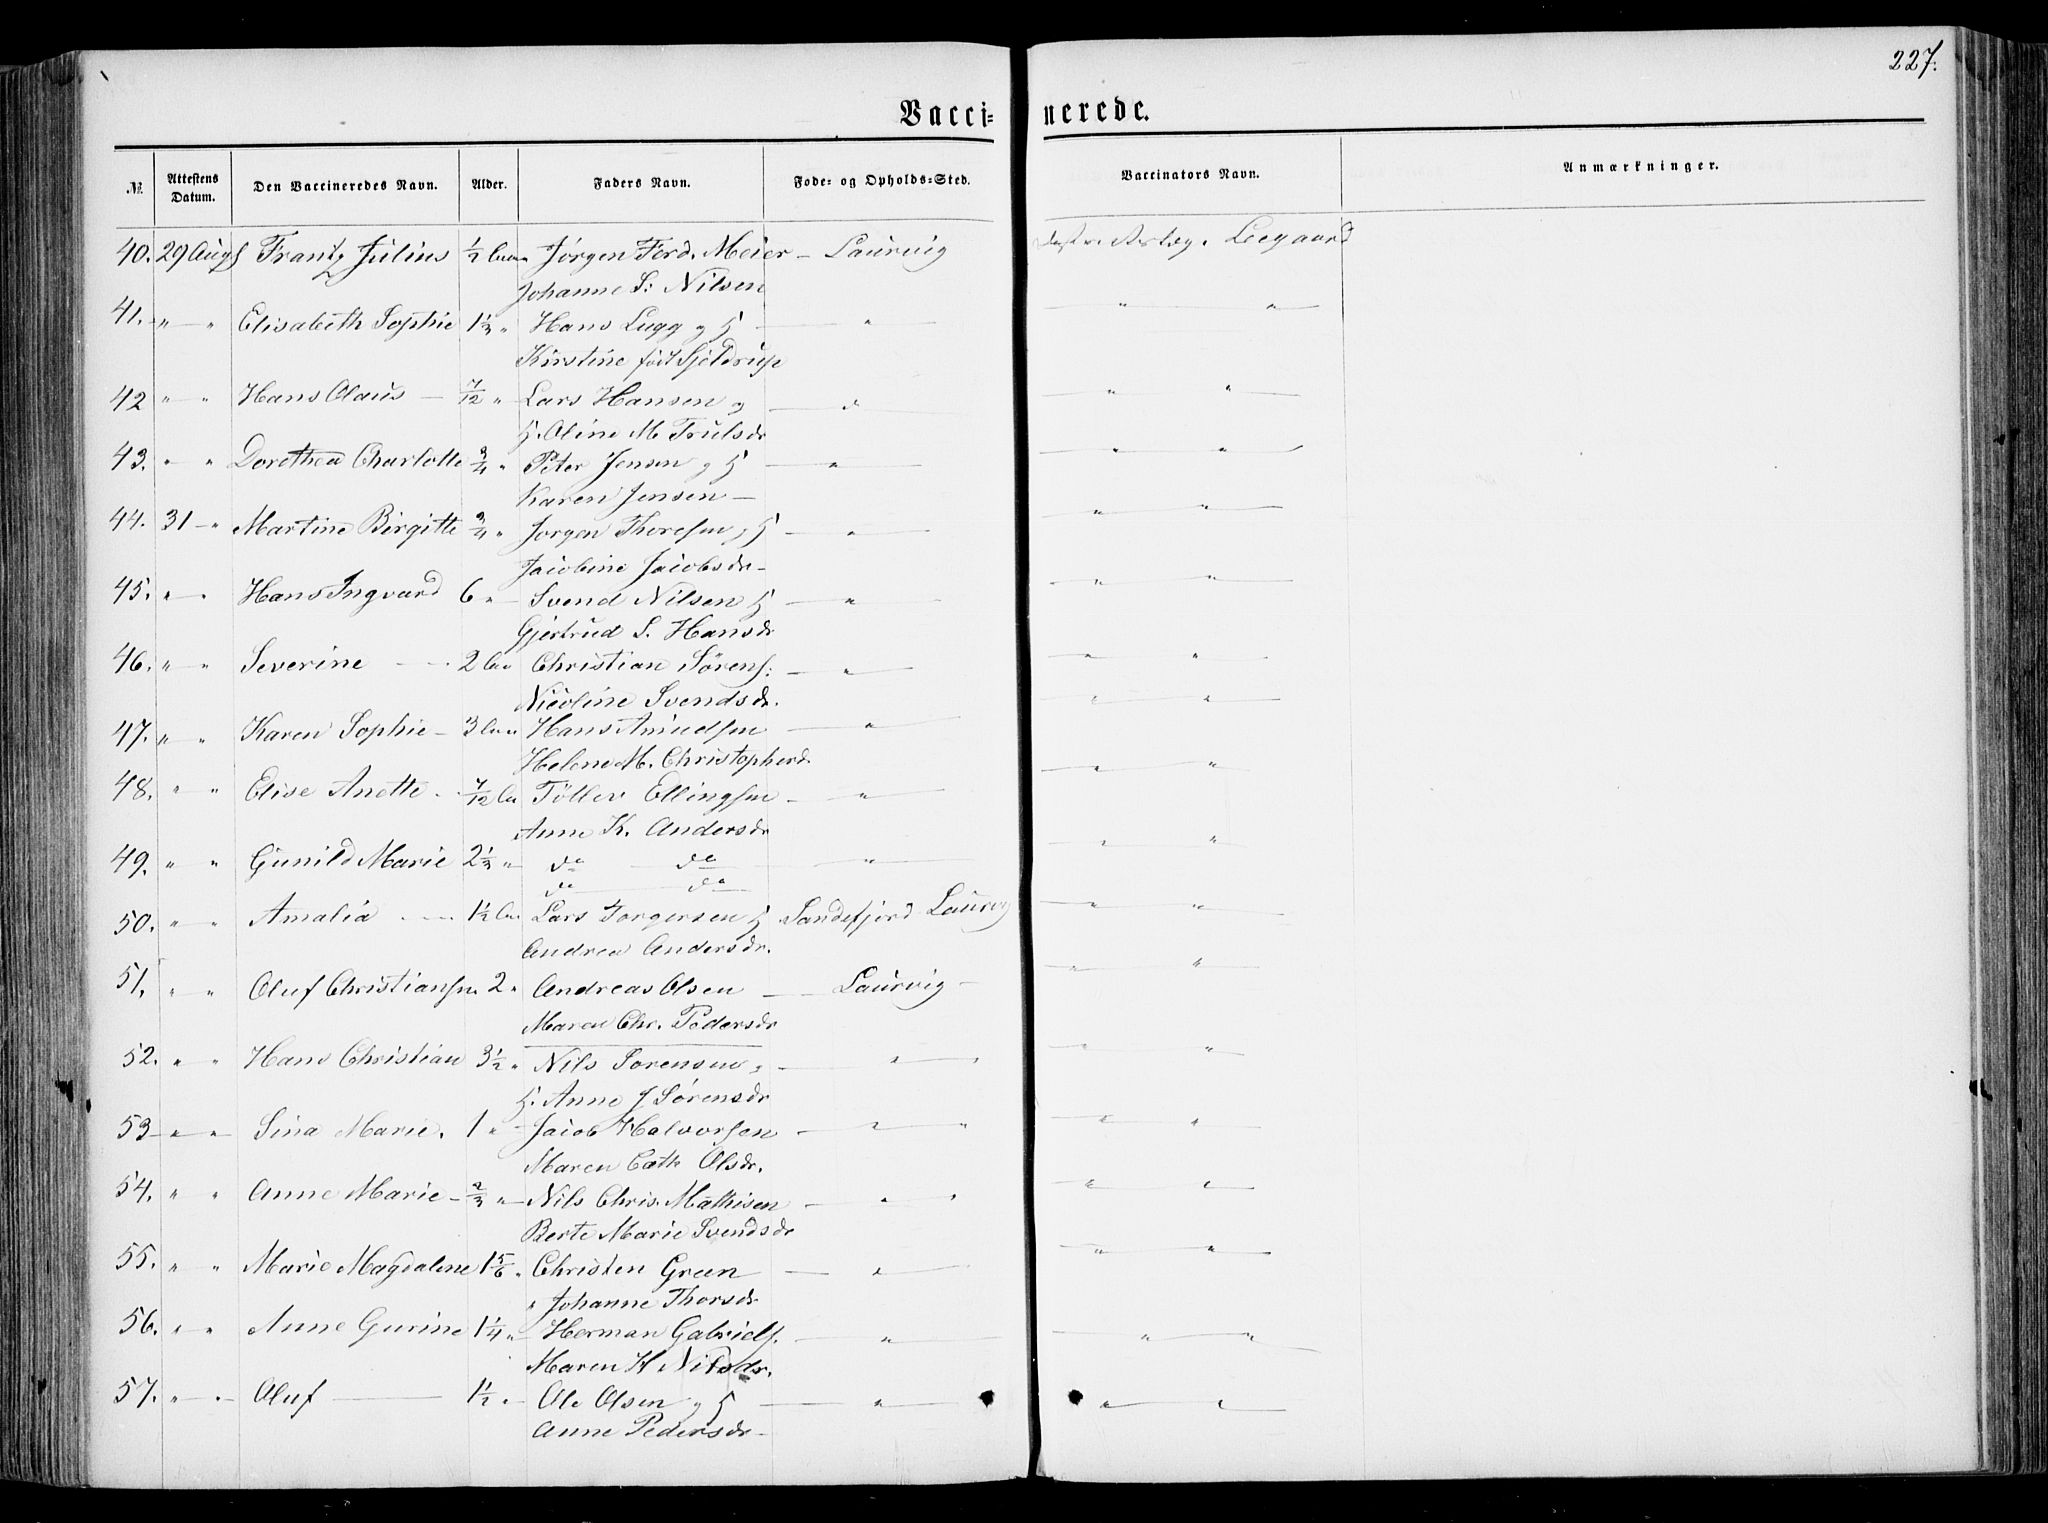 227.
Vacci=nerede.
No. Attestens Datum. Den Vaccineredes Navn. Alder. Faders Navn. Føde= og Opholds=Sted. Vaccinators Navn. Anmærkninger.
40. 29 Augs Frantz Julius ½ Jørgen Ferd. Meier – Laurvig Leegaard
Johanne S. Nilsen
41. " " Elisabeth Sophie 1⅓ " Hans Lugg og H — " " "
Kirstine født Sjeldrup
42 " " Hans Olaus – 7/12 " Lars Hansen og " "
H. Oline M. Trulsdr
43. " " Dorothea Charlotte ¾ " Peter Jensen og H — " " "
Karen Jensen –
44. 31 – " Martine Birgitte ¾ " Jørgen Thoresen og H — " " "
Jacobine Jacobsdr –
45. " " Hans Ingvard 6 " Svend Nilsen H — " " "
Gjertrud S. Hansdr
46. " " Severine – 2 Christian Sørens: — " " "
Nicoline Svendsdr.
47. " " Karen Sophie – 3 Hans Amundsen — " " "
Helene M. Christophersdr.
48. " " Elise Anette – 7/12 Tollev Ellingsen – " " "
Anne K. Andersdr
49. " " Gunild Marie 2⅓ " do do " " "
do do
50. " " Amalia – 1½ Lars Torgersen H Sandefjord Laurvig " "
Andrea Andersdr.
51. " " Oluf Christiansen 2 " Andreas Olsen — Laurvig – " "
Maren Chr. Pedersdr
52. " " Hans Christian 3½ " Nils Sorensen og – " " " "
H. Anne J Sørensdr
53 " " Sina Marie. 1 " Jacob Halvorsen – " " " "
Maren Cath Olsdr.
54. " " Anne Marie – ⅔ " Nils Chris. Mathisen – " " " "
Berte Marie Svendsdr
55. " " Marie Magdalene 1⅚ " Christen Green — " " "
" Johanne Thorsdr
56. " " Anne Gurine 1¼ " Herman Gabriels. – " " "
Maren H Nilsdr.
57. " " Oluf — 1½ " Ole Olsen og H — " " "
Anne Pedersdr –